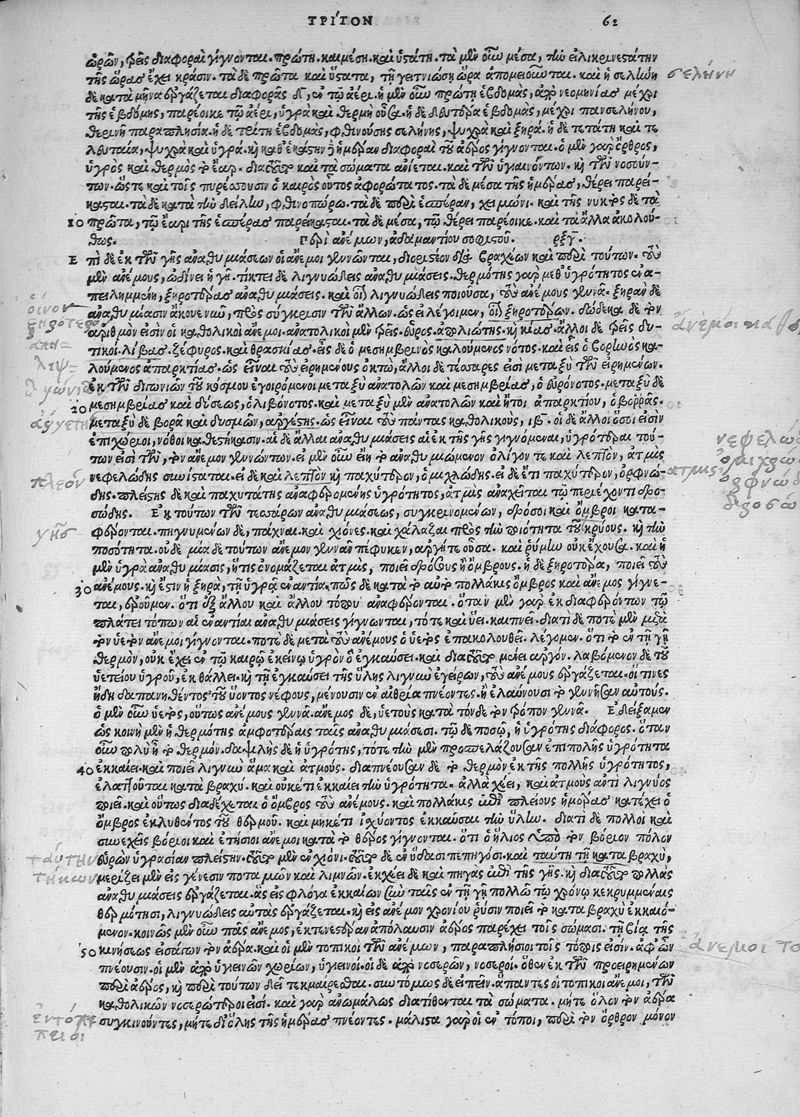 ΤΡΙΤΟΝ 62
ὡρῶν, τρεῖς διαφοραὶ γίγνονται. πρώτη. καὶ μέση. καὶ ὑστάτη. τὰ μὲν οὖν μέσα, τὴν εἰλικρινεστάτην
τῆς ὥρας ἔχει κρᾶσιν. τὰ δὲ πρῶτα καὶ ὕστατα, τῇ γειτνιώσῃ ὥρᾳ ἀπομειοῦται. καὶ ἡ σελήνη
δὲ κατὰ μῆνα ἐργάζεται διαφορὰς δ', ἐν τῷ ἀέρι. ἡ μὲν οὖν πρώτη ἑβδομὰς, ἀπὸ νεομηνίας μέχρι
τῆς ἑβδόμης, παρέοικε τῷ ἀέρι, ὑγρὰ καὶ θερμὴ οὖσα. ἡ δὲ δευτέρα ἑβδομὰς, μέχρι πανσελήνου,
θερινῇ παραπλησία. ἡ δὲ τρίτη ἑβδομὰς, φθινούσης σελήνης, ψυχρὰ καὶ ξηρά. ἡ δὲ τετάρτη καὶ τε
λευταία, ψυχρὰ καὶ ὑγρά. καὶ καθ' ἑκάστην ἡμέραν διαφοραὶ τοῦ ἀέρος γίγνονται. ὁ μὲν γὰρ ὄρθρος,
ὑγρὸς καὶ θερμὸς τὸ ἔαρ. διόπερ καὶ τὰ σώματα ἀνίεται. καὶ τῶν ὑγιαινόντων. καὶ τῶν νοσούν-
των. ὥστε καὶ τοῖς πυρέσσουσιν ὁ καιρὸς οὗτος ἀφορώτατος. τὰ δὲ μέσα τῆς ἡμέρας, θέρει παρεί-
κασται. τὰ δὲ κατὰ τὴν δείλην, φθινοπώρῳ. τὰ δὲ περὶ ἑσπέραν, χειμῶνι. καὶ τῆς νυκτὸς δὲ τὰ
10 πρῶτα, τῷ ἔαρι τῆς ἑσπέρας παρείκασται. τὰ δὲ μέσα, τῷ θέρει παρέοικε. καὶ τὰ ἄλλα ἀκολού-
θως. Περὶ ἀνέμων, ἀδαμαντίου σοφιστοῦ. ρξγ'.
Ε πὶ δὲ ἐκ τῶν γῆς ἀναθυμιάσεων οἱ ἄνεμοι γίνονται, διοριστέον διὰ βραχέων καὶ περὶ τούτων. τοὺς
μὲν ἀνέμους, ὠδίνει ἡ γῆ. τίκτει δὲ λιγνυώδεις ἀναθυμιάσεις. θερμότης γὰρ μεθ' ὑγρότητος ἐνα-
πειλημμένη, ξηροτέρας ἀναθυμιάσεις. καὶ οἷον λιγνυώδεις ποιοῦσα, τοὺς ἀνέμους γεννᾷ. ξηρὰν δὲ
ἀναθυμίασιν ἀκούειν, πρὸς σύγκρισιν τῶν ἄλλων. ὡς εἰ λέγοιμεν, ξηροτέρων. δώδεκα δὲ τὸν
ἀριθμόν εἰσιν οἱ καθολικοὶ ἄνεμοι. ἀνατολικοὶ μὲν τρεῖς. εὖρος. ἀπηλιώτης. καὶ καικίας. ἄλλοι δὲ τρεῖς δυ-
τικοί. λίβας. ζέφυρος. καὶ θρασκίας. εἷς δὲ ὁ μεσημβρινὸς καλούμενος νότος. καὶ εἷς ὁ βόρειος κα-
λούμενος ἀπαρκτίας. ὡς εἶναι τοὺς εἰρημένους ὀκτώ. ἄλλοι δὲ τέσσαρες εἰσὶ μεταξὺ τῶν εἰρημένων.
ἐκ τῶν διγωνιῶν τοῦ κόσμου ἐγειρόμενοι μεταξὺ ἀνατολῶν καὶ μεσημβρίας, ὁ εὐρόνοτος. μεταξὺ δὲ
20 μεσημβρίας καὶ δύσεως, ὁ λιβόνοτος. καὶ μεταξὺ μὲν ἀνατολῶν καὶ ἤτοι ἀπαρκτίου, ὁ βορρᾶς.
μεταξὺ δὲ βορᾶ καὶ δυσμῶν, ἀργέστης. ὡς εἶναι τοὺς πάντας καθολικοὺς, ιβ'. οἱ δὲ ἄλλοι ὅσοι εἰσὶν
ἐπιχώριοι, νόθοι καθεστήκασιν. αἱ δὲ ἄλλαι ἀναθυμιάσεις αἱ ἐκ τῆς γῆς γιγνόμεναι, ὑγρότεραι τού-
των εἰσὶ τῶν, τὸν ἄνεμον γεννώντων. εἰ μὲν οὖν εἴη τὸ ἀναθυμιώμενον ὀλίγον τε καὶ λεπτὸν, ἀτμὶς
νεφελώδης συνίσταται. εἰ δὲ καὶ λεπτὸν καὶ παχύτερον, ὁμιχλώδης. εἰ δὲ ἔτι παχύτερον, ὀρφνώ-
δης. πλείστης δὲ καὶ παχυτάτης ἀναφερομένης ὑγρότητος, ἀτμὶς ἀναχεῖται τῷ περιέχοντι δρο-
σώδης. Ἐκ τούτων τῶν τεσσάρων ἀναθυμιάσεως, συγκρινομένων, δρόσοι καὶ ὄμβροι κατα-
φέρονται. πηγνυμένων δὲ, πάχναι. καὶ χιόνες. καὶ χάλαζαι πρὸς τὴν ποιότητα τοῦ κρύους. καὶ τὴν
ποσότητα. οὐδὲ μία δὲ τούτων ἄνεμον γεννᾶν πέφυκεν, ἀργή τε οὖσα. καὶ ῥύμην οὐκ ἔχουσα. καὶ ἡ
μὲν ὑγρὰ ἀναθυμίασις, ἥτις ὀνομάζεται ἀτμὶς, ποιεῖ δρόσους ἢ ὄμβρους. ἡ δὲ ξηροτέρα, ποιεῖ τοὺς
30 ἀνέμους. καὶ ἔστιν ἡ ξηρὰ, τῇ ὑγρᾷ ἐναντία. πῶς δὲ κατὰ τὸ αὐτὸ πολλάκις ὄμβρος καὶ ἄνεμος γίγνε-
ται, ἐροῦμεν. ὅτι ἐξ ἄλλου καὶ ἄλλου τόπου ἀναφέρονται. ὅταν μὲν γὰρ ἐκ διαφερόντων τῷ
πλάτει τόπων αἱ ἐναντίαι ἀναθυμιάσεις γίγνωνται, τότε καὶ ὕει. καὶ πνεῖ. διατί δὲ ποτὲ μὲν μετὰ
τὸν ὑετὸν ἄνεμοι γίγνονται. ποτὲ δὲ μετὰ τοὺς ἀνέμους ὁ ὑετὸς ἐπακολουθεῖ. λέγομεν. ὅτι τὸ ἐν τῇ γῇ
θερμὸν, οὐκ ἔχει ἐν τῷ καιρῷ ἐκείνῳ ὑγρὸν ὃ ἐγκαύσει. καὶ διόπερ μένει ἀργόν. λαβόμενον δὲ τοῦ
ὑετείου ὑγροῦ, ἐκθάλλει. καὶ τῇ ἐγκαύσει τῆς ὕλης λιγνὺν ἐγεῖρον, τοὺς ἀνέμους ἐργάζεται. οἵτινες
ἤδη δαπανηθέντος τοῦ ὕοντος νέφους, μένουσιν ἐν αἰθρίᾳ πνέοντες. ἢ ἐλαύνουσι τὸ γεννῆσαν αὐτούς.
ὁ μὲν οὖν ὑετὸς, οὕτως ἀνέμους γεννᾷ. ἄνεμος δὲ, ὑετοὺς κατὰ τόνδε τὸν τρόπον γεννᾷ. Ἐδείξαμεν
ὡς κοινὴ μὲν ἡ θερμότης ἀμφοτέραις ταῖς ἀναθυμιάσεσι. τῷ δὲ ποσῷ, ἡ ὑγρότης διάφορος. ὅταν
οὖν πολὺ ᾖ τὸ θερμὸν. δαψιλὴς δὲ ἡ ὑγρότης, τότε τὴν μὲν προσπελάζουσαν ἐπιπολῆς ὑγρότητα
40 ἐκκαίει. καὶ ποιεῖ λιγνὺν ἅμα καὶ ἀτμούς. διαπνέουσαν δὲ τὸ θερμὸν ἐκ τῆς πολλῆς ὑγρότητος,
ἐλαττοῦται κατὰ βραχύ. καὶ οὐκέτι ἐκκαίει τὴν ὑγρότητα. ἀλλὰ χέει, καὶ ἀτμοὺς ἀντὶ λιγνύος
ποιεῖ. καὶ οὕτως διαδέχεται ὁ ὄμβρος τοὺς ἀνέμους. καὶ πολλάκις ἐπὶ πλείους ἡμέρας κατέχει ὁ
ὄμβρος ἐκλυθέντος τοῦ θερμοῦ. καὶ μηκέτι ἰσχύοντος ἐκκαῦσαι τὴν ὕλην. διατί δὲ πολλοὶ καὶ
συνεχεῖς βόρειοι καὶ ἐτήσιοι ἄνεμοι κατὰ τὸ θέρος γίγνονται. ὅτι ὁ ἥλιος ὑπὸ τὸν βόρειον πόλον
εὑρὼν ὑγρασίαν πλείστην. ὅπερ μὲν ἐν χιόνι. ὅπερ δὲ ἐν ὕδασι πεπηγόσι. καὶ ταύτη τῇ κατὰ βραχὺ,
μερίζει μὲν εἰς γένεσιν ποταμῶν καὶ λιμνῶν. ἐκχέει δὲ καὶ πηγὰς ἐπὶ τῆς γῆς. καὶ διόπερ πολλὰς
ἀναθυμιάσεις ἐργάζεται. ἃς εἰς φλόγα ἐκκαίων σὺν ταῖς ἐν τῇ γῇ πολλῷ τῷ χρόνῳ κεκρυμμέναις
θερμότησι, λιγνυώδεις αὐτὰς ἐργάζεται. καὶ εἰς ἀνέμων χρονίου ῥύσιν ποιεῖ τὸ κατὰ βραχὺ ἐκκαιό-
μενον. κοινῶς μὲν οὖν πᾶς ἄνεμος, ἐκτενεστέραν ἀπόλαυσιν ἀέρος παρέχει τοῖς σώμασι. τῇ βίᾳ τῆς
50 κινήσεως εἰσάγων τὸν ἀέρα. καὶ οἱ μὲν τοπικοὶ τῶν ἀνέμων, παραπλήσιοι τοῖς τόποις εἰσίν. ἀφ' ὧν
πνέουσιν. οἱ μὲν ἀπὸ ὑγιεινῶν χωρίων, ὑγιεινοί. οἱ δὲ ἀπὸ νοσερῶν, νοσεροί. ὅθεν ἐκ τῶν προειρημένων
περὶ ἀέρος, καὶ περὶ τούτων δεῖ τεκμαίρεσθαι. συντόμως δὲ εἰπεῖν. ἅπαντες οἱ τοπικοὶ ἄνεμοι, τῶν
καθολικῶν νοσερώτεροί εἰσι. καὶ γὰρ ἀνωμάλως διατίθενται τὰ σώματα. μήτε ὅλον τὸν ἀέρα
συγκινοῦντες, μήτε δι' ὅλης τῆς ἡμέρας πνέοντες. μάλιστα γὰρ οἱ ἐν τόποι, περὶ τὸν ὄρθρον μόνον
σελήνη
πλέον
γῆς
ταύτην
τήκων
ἐντόπιοι